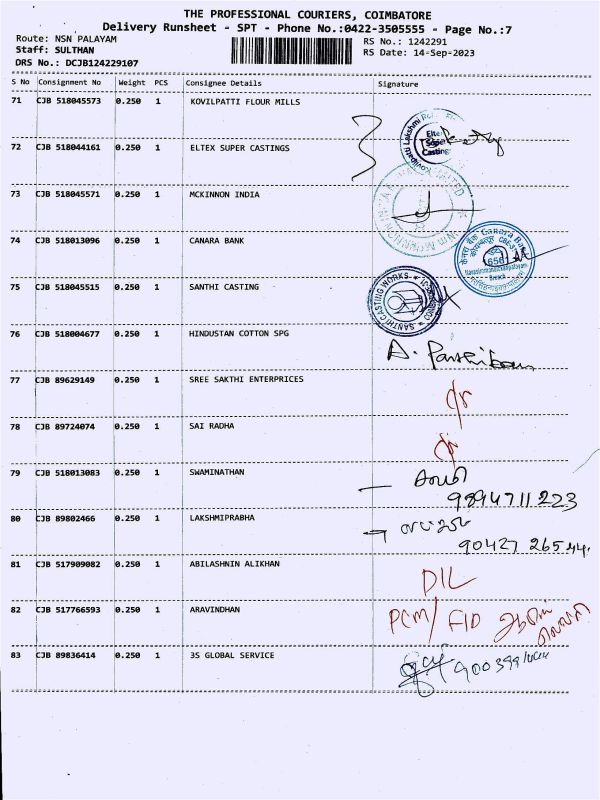 THE PROFESSIONAL COURIERS, COIMBATORE
Delivery Runsheet - SPT - Phone No.:0422-3505555 - Page No.:7
Route: NSN PALAYAM
RS No.: 1242291
Staff: SULTHAN
RS Date: 14-Sep-2023
DRS No.: DCJB124229107
S No Consignment No Weight PCS Consignee Details Signature
71 CJB 518045573 0.250 1 KOVILPATTI FLOUR MILLS
72 CJB 518044161 0.250 1 ELTEX SUPER CASTINGS
Eltex
Super
Castings
73 CJB 518045571 0.250 1 MCKINNON INDIA
74 CJB 518013096 0.250 1 CANARA BANK
Canara Bank
Branch
75 CJB 518045515 0.250 1 SANTHI CASTING
SANTHI CASTING WORKS
76 CJB 518004677 0.250 1 HINDUSTAN COTTON SPG
A. Parthiban
77 CJB 89629149 0.250 1 SREE SAKTHI ENTERPRICES
78 CJB 89724074 0.250 1 SAI RADHA
79 CJB 518013083 0.250 1 SWAMINATHAN
9894711223
80 CJB 89802466 0.250 1 LAKSHMIPRABHA
90427 26544
81 CJB 517909082 0.250 1 ABILASHNIN ALIKHAN
DIL
82 CJB 517766593 0.250 1 ARAVINDHAN
PCM/ FID
83 CJB 89836414 0.250 1 3S GLOBAL SERVICE